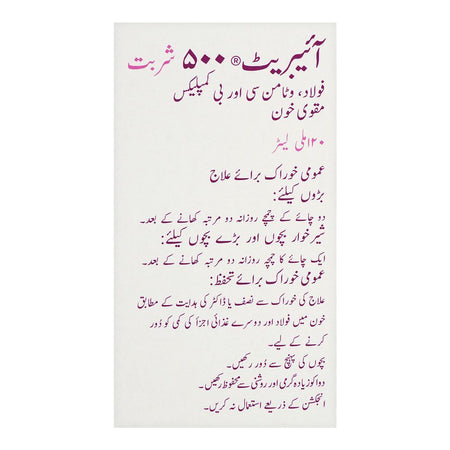 آئیبریٹ® ۵۰۰ شربت
فولاد، وٹامن سی اور بی کمپلیکس
مقوی خون
۱۲۰ ملی لیٹر
عمومی خوراک برائے علاج
بڑوں کیلئے:
دو چائے کے چمچے روزانہ دو مرتبہ کھانے کے بعد۔
شیر خوار بچوں اور بڑے بچوں کیلئے:
ایک چائے کا چمچہ روزانہ دو مرتبہ کھانے کے بعد۔
عمومی خوراک برائے تحفظ:
علاج کی خوراک سے نصف یا ڈاکٹر کی ہدایت کے مطابق
خون میں فولاد اور دوسرے غذائی اجزأ کی کمی کو دُور
کرنے کے لیے۔
بچوں کی پہنچ سے دُور رکھیں۔
دوا کو زیادہ گرمی اور روشنی سے محفوظ رکھیں۔
انجکشن کے ذریعے استعمال نہ کریں۔